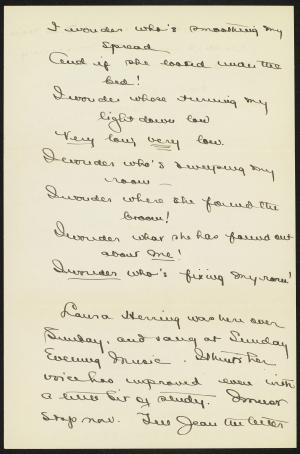 I wonder who's smoothing my
spread
And if she looked under the
bed!
I wonder whose turning my
light down low
Very low, very low.
I wonder who's sweeping my
room —
I wonder where she found the
broom!
I wonder what she has found out
about me!
I wonder who's fixing my room!
Laura Herring was here over
Sunday, and sang at Sunday
Evening Music. I think her
voice has improved even with
a little bit of study. I must
stop now. Tell Jean the letter